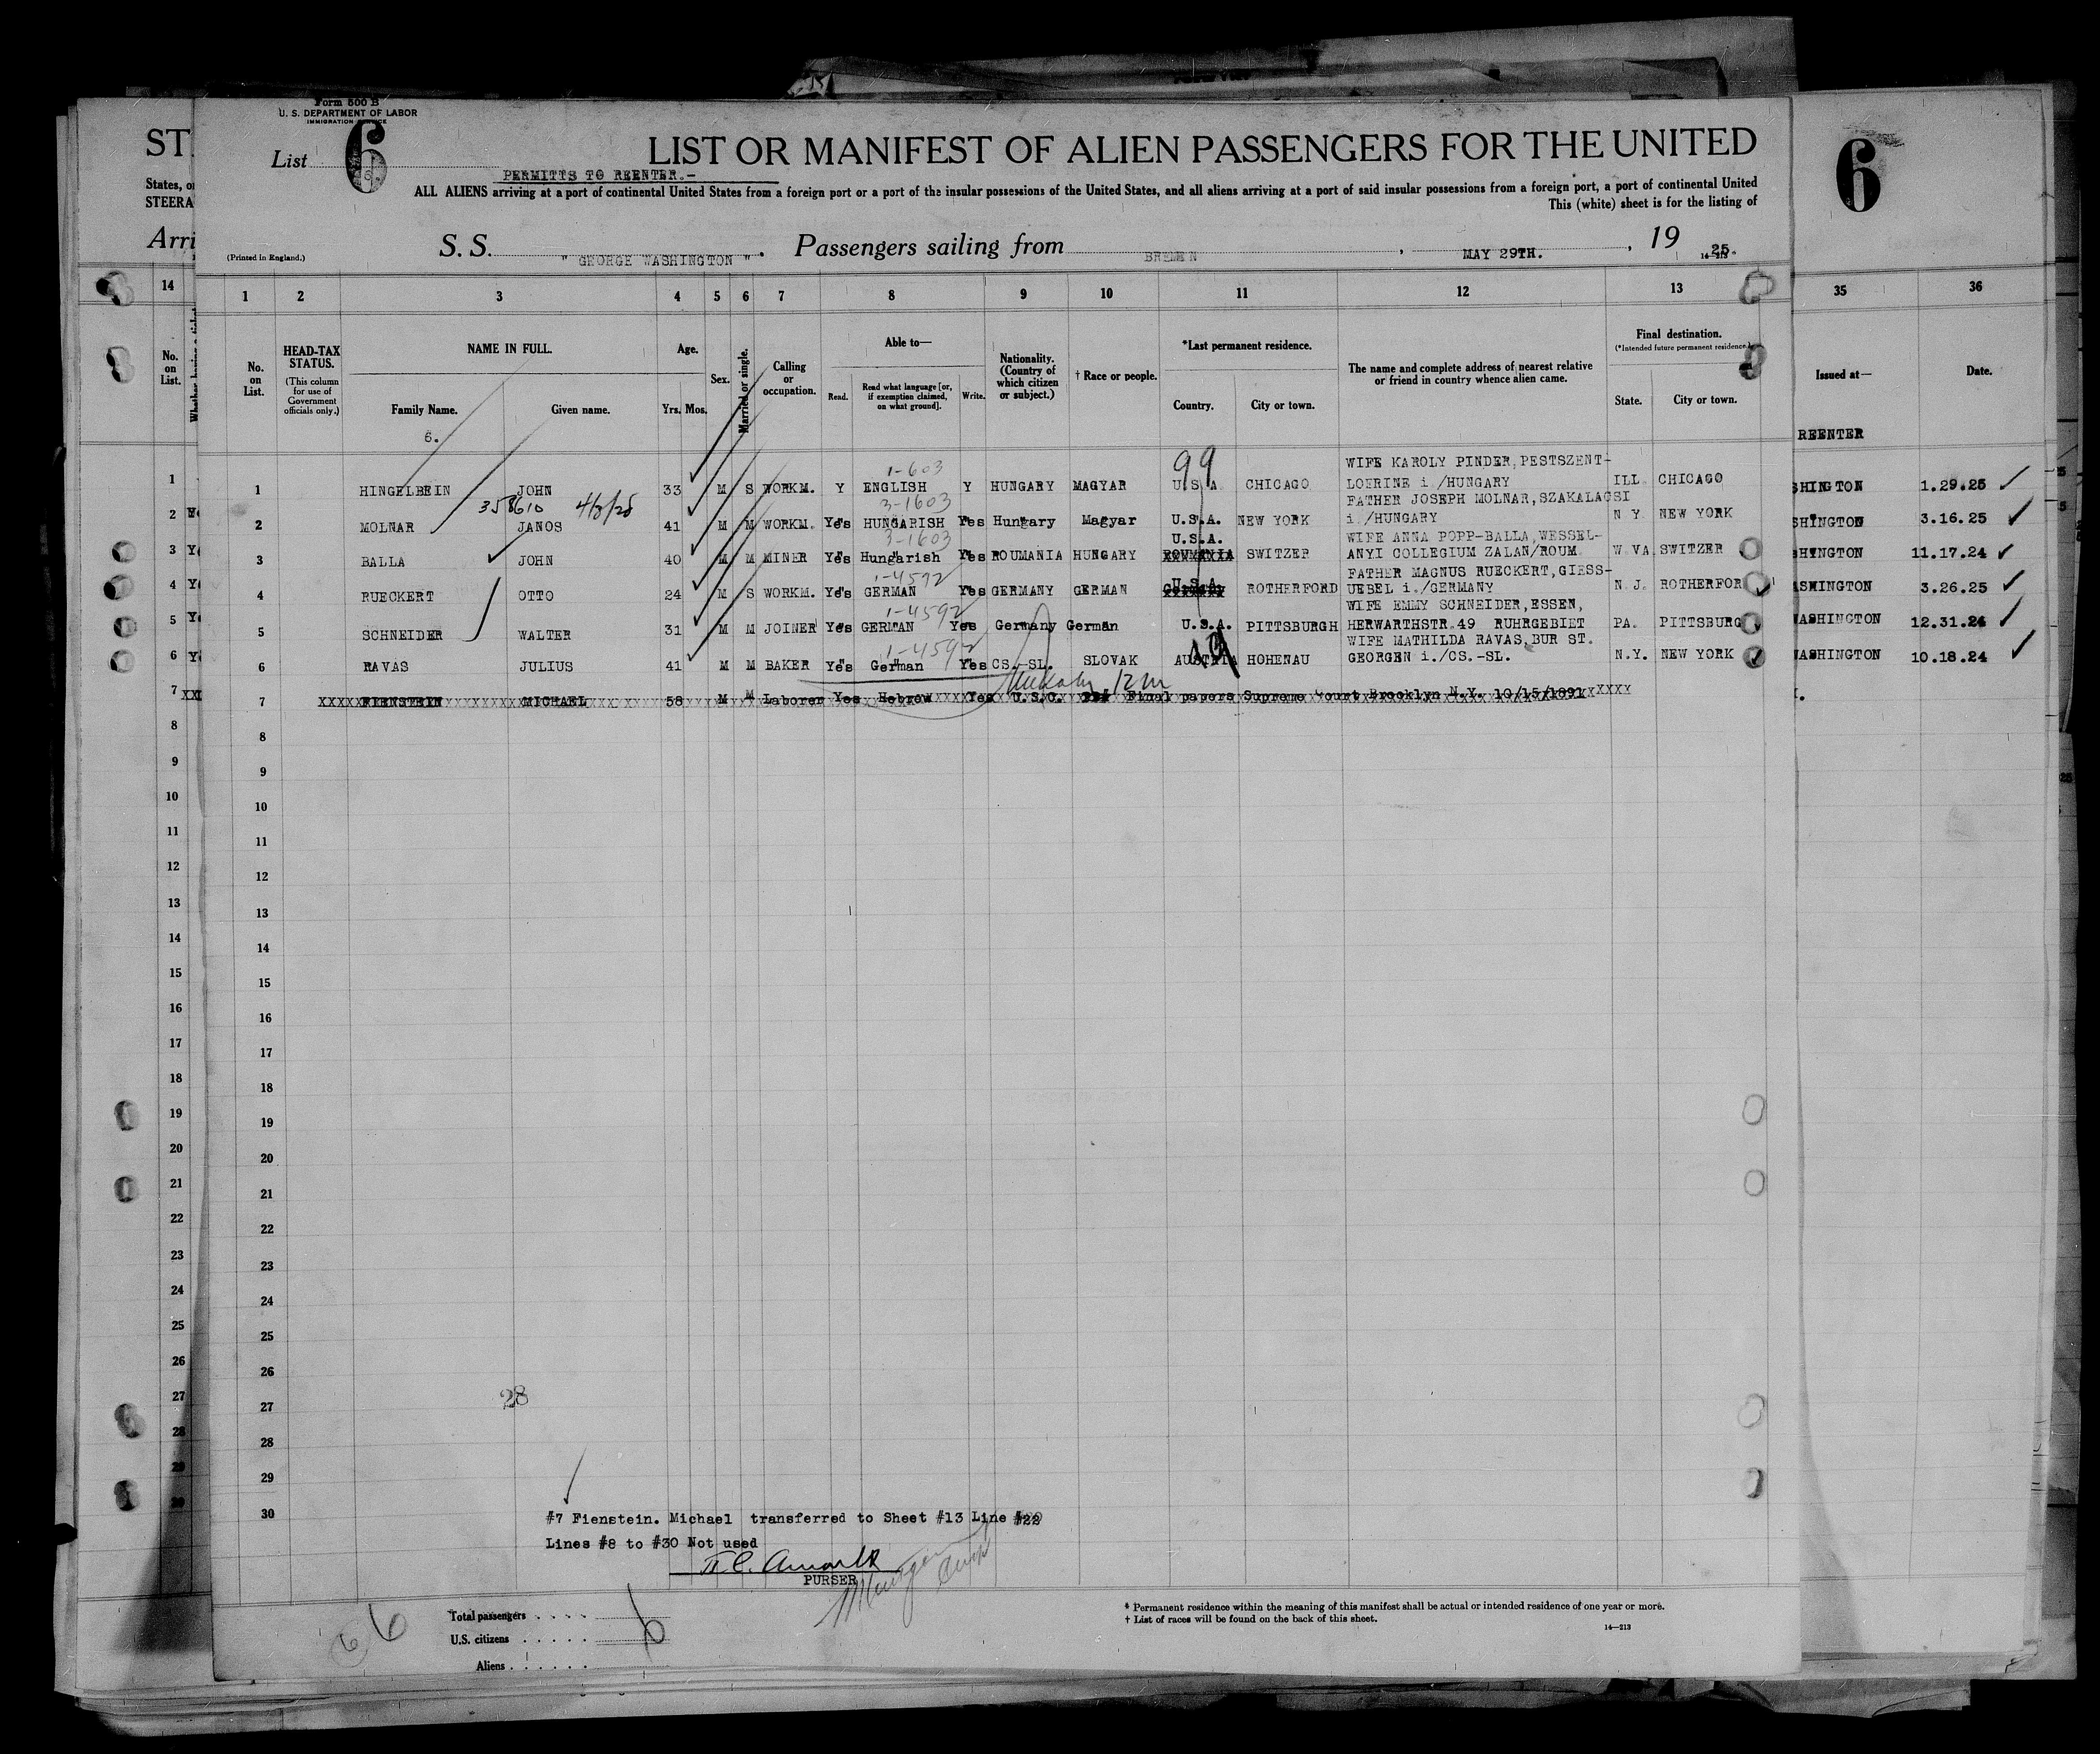 Form 500 B
U. S. DEPARTMENT OF LABOR
IMMIGRATION SERVICE
List 6
LIST OR MANIFEST OF ALIEN PASSENGERS FOR THE UNITED
6
PERMITTS TO REENTER.-
ALL ALIENS arriving at a port of continental United States from a foreign port or a port of the insular possessions of the United States, and all aliens arriving at a port of said insular possessions from a foreign port, a port of continental United
This (white) sheet is for the listing of
ST
States, o
STEERA
Arri
(Printed in England.)
S. S. " GEORGE WASHINGTON ". Passengers sailing from BREMEN, MAY 29TH., 19 25.
14 1 2 3 4 5 6 7 8 9 10 11 12 13 35 36
No. on List.
HEAD-TAX STATUS.
(This column for use of Government officials only.)
NAME IN FULL.
Family Name.
Given name.
Age.
Yrs. Mos.
Sex.
Married or single.
Calling or occupation.
Able to—
Read.
Read what language [or, if exemption claimed, on what ground].
Write.
Nationality. (Country of which citizen or subject.)
† Race or people.
*Last permanent residence.
Country.
City or town.
The name and complete address of nearest relative or friend in country whence alien came.
Final destination.
(*Intended future permanent residence.)
State.
City or town.
Issued at—
Date.
6.
REENTER
99
1-603
WIFE KAROLY PINDER,PESTSZENT-
1 HINGELBEIN JOHN 33 M S WORKM. Y ENGLISH Y HUNGARY MAGYAR U.S.A. CHICAGO LOERINE i./HUNGARY ILL. CHICAGO SHINGTON 1.29.25
358610 4/3/25
3-1603
FATHER JOSEPH MOLNAR,SZAKALAOSI
2 MOLNAR JANOS 41 M M WORKM. Yes HUNGARISH Yes Hungary Magyar U.S.A. NEW YORK i./HUNGARY N Y. NEW YORK SHINGTON 3.16.25
3-1603
U.S.A.
WIFE ANNA POPP-BALLA,WESSEL-
3 BALLA JOHN 40 M M MINER Yes Hungarish Yes ROUMANIA HUNGARY ROUMANIA SWITZER ANYI COLLEGIUM ZALAN/ROUM. W.VA. SWITZER SHINGTON 11.17.24
1-4592
U.S.A.
FATHER MAGNUS RUECKERT,GIESS-
4 RUECKERT OTTO 24 M S WORKM. Yes GERMAN Yes GERMANY GERMAN Germany ROTHERFORD UEBEL i./GERMANY N.J. ROTHERFOR ASHINGTON 3.26.25
1-4592
WIFE EMMY SCHNEIDER,ESSEN,
5 SCHNEIDER WALTER 31 M M JOINER Yes GERMAN Yes Germany German U.S.A. PITTSBURGH HERWARTHSTR.49 RUHRGEBIET PA. PITTSBURG WASHINGTON 12.31.24
1-4592
WIFE MATHILDA RAVAS,BUR ST.
6 RAVAS JULIUS 41 M M BAKER Yes German Yes CS.-SL. SLOVAK AUSTRIA HOHENAU GEORGEN i./CS.-SL. N.Y. NEW YORK WASHINGTON 10.18.24
7 FIENSTEIN MICHAEL 58 M M Laborer Yes Hebrew Yes U.S.C. Final papers Supreme Court Brooklyn N.Y. 10/15/1891
8
9
10
11
12
13
14
15
16
17
18
19
20
21
22
23
24
25
26
27
28
28
29
30
#7 Fienstein. Michael transferred to Sheet #13 Line #22
Lines #8 to #30 Not used
PURSER
6 6
Total passengers . . . .
U.S. citizens . . . . . 6
Aliens . . . . . .
* Permanent residence within the meaning of this manifest shall be actual or intended residence of one year or more.
† List of races will be found on the back of this sheet.
14—213